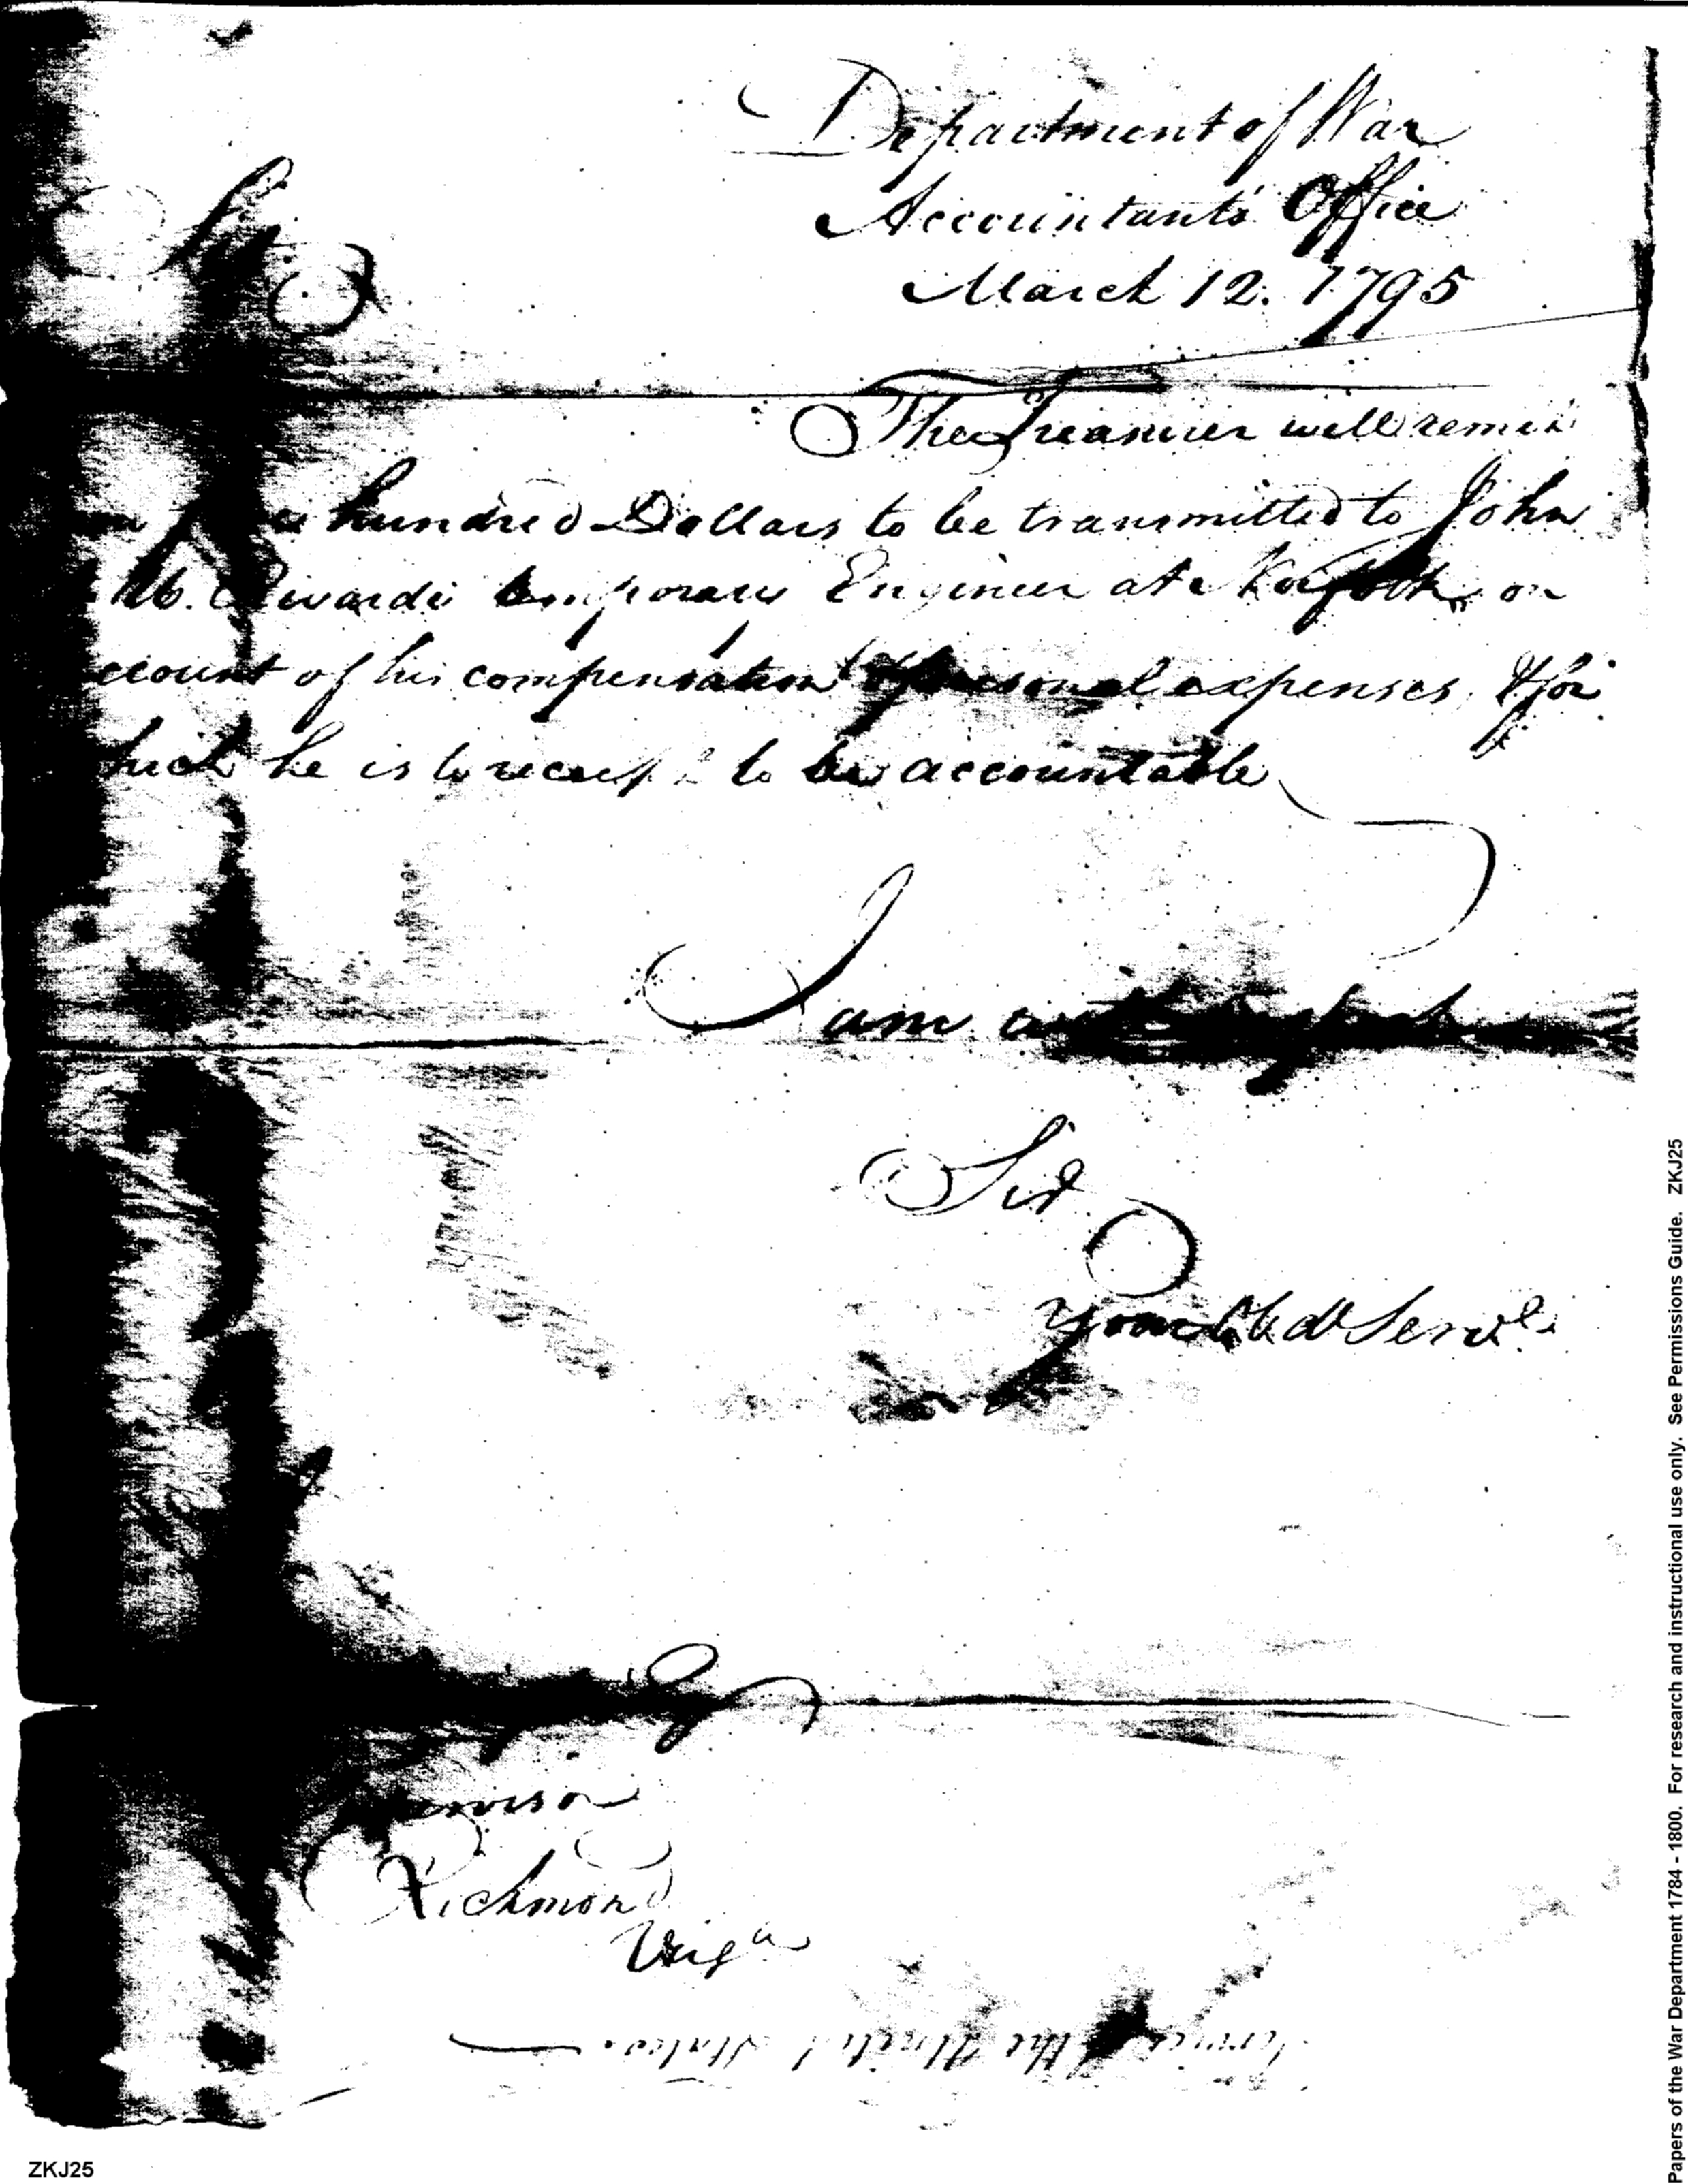 Department of War
Accountants Office
March 12. 1795
Sir
The Treasurer will remit
hundred Dollars to be transmitted to John
Rivardi temporary Engineer at Norfolk on
account of his compensation & personal expenses, & for
which he is to receipt to be accountable
I am with respect
Sir
Your Obdt Servt.
Richmond
Virga
Service of the United States
Papers of the War Department 1784 - 1800. For research and instructional use only. See Permissions Guide. ZKJ25
ZKJ25